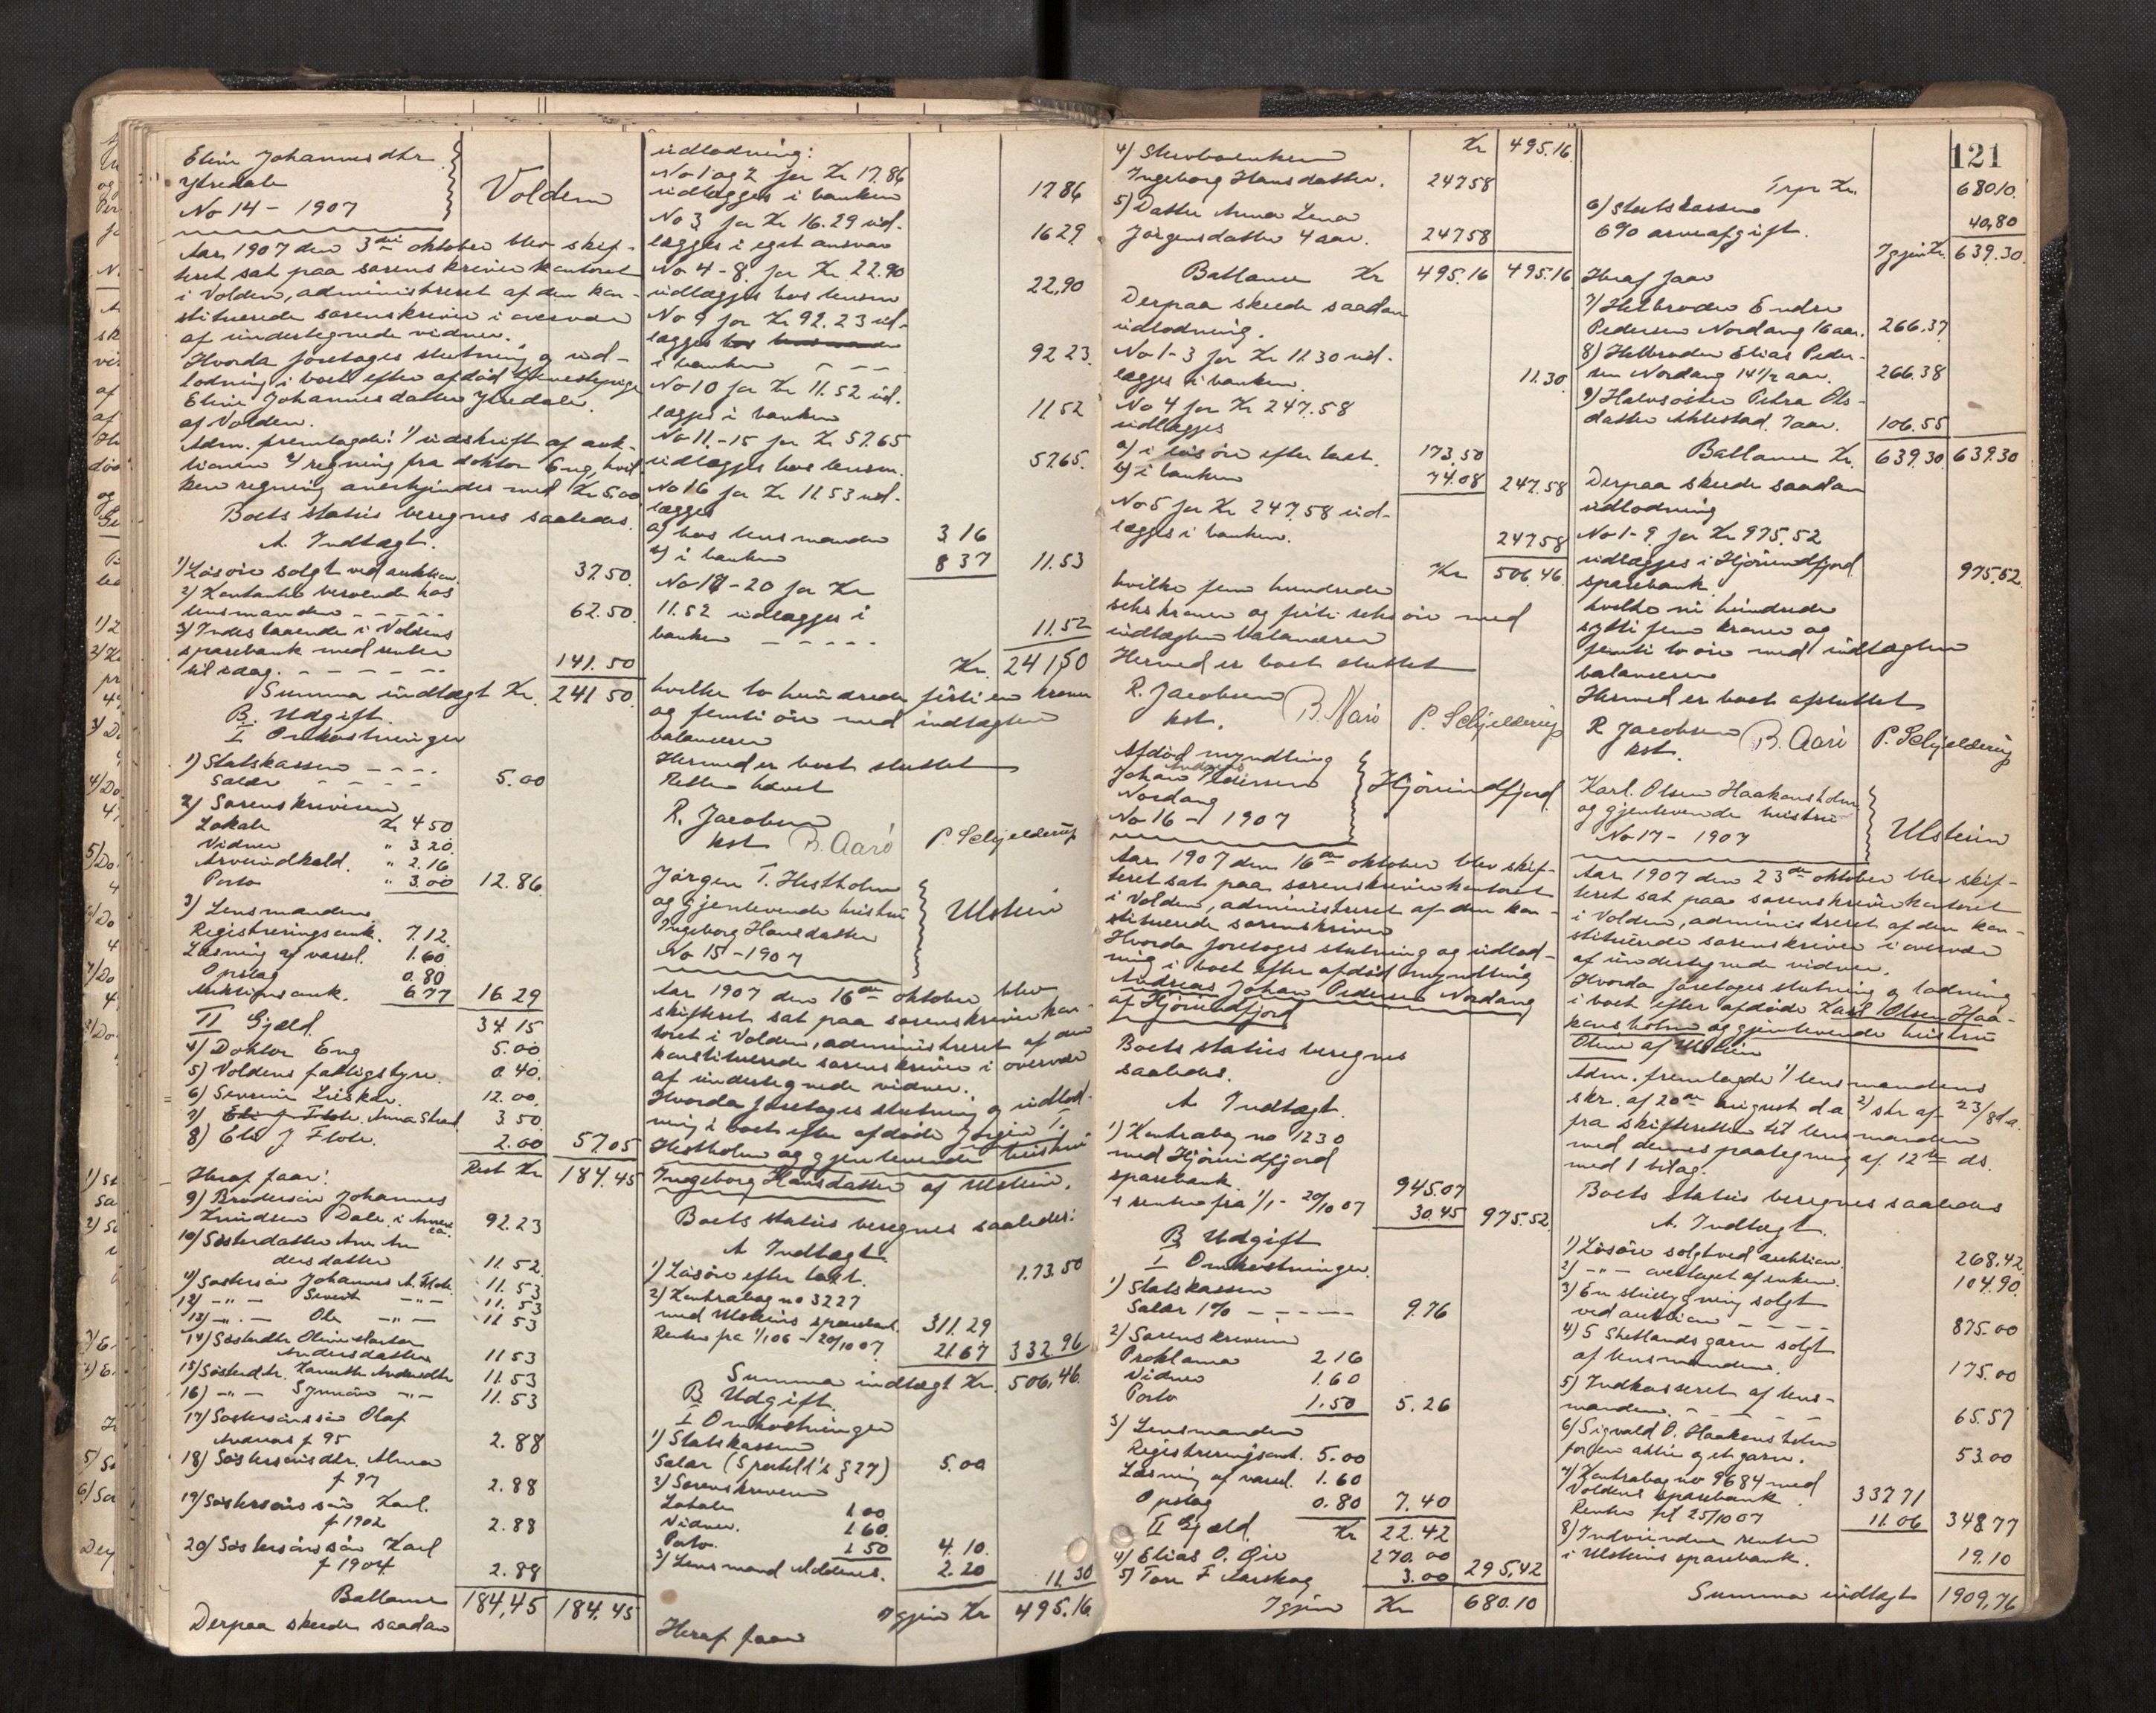 Eline Johannesdtr
Ytredale
No 14 - 1907
Volden
Aar 1907 den 3die oktober blev skif-
teret sat paa sorenskriverkontoret
i Volden, administreret af den kon-
stituerede sorenskriver i overvær
af undertegnede vidner.
Hvorda foretoges slutning og ud-
lodning i boet efter afdød
Eline Johannesdatter Ytredale
af Volden.
Adm. fremlagde: 1/ udskrift af auk-
tionen 2/ regning fra doktor Eng, hvil-
ken regning anerkjendes med Kr 5.00
Boets status beregnes saaledes.
A. Indtægt.
1) Løsøre solgt ved auktion. 37.50.
2) Kontanter beroende hos
lensmanden - - - - - 62.50.
3) Indestaaende i Voldens
sparebank med renter
til idag. - - - - - - 141.50
Summa indtægt Kr. 241.50.
B. Udgift.
I Omkostninger
1) Statskassen - - - -
Salær - - - - 5.00
2) Sorenskriveren
Lokale Kr 4 50
Vidner " 3 20.
Arveindkald. " 2.16
Porto " 3.00 12.86
3) Lensmanden
Registreringsomk. 7.12.
Læsning af varsel. 1.60
Opslag 0.80
Auktionsomk. 6 77 16 29
34 15
II Gjæld.
4) Doktor Eng 5.00
5) Voldens fattigstyre. 0.40.
6) Severine 12.00.
7) Anna 3.50.
8) Eli J Flote. 2.00 57.05
Rest Kr 184.45
Heraf faar:
9) Brodersøn Johannes
Knudsen Dale i Amerika. 92.23
10) Søsterdatter Ane An
dersdatter 11.52.
11) Søstersøn Johannes A. Flote. 11.53
12) - " - Sivert - " - 11.53
13) - " - Ole - " - 11 53
14) Søsterdtr Oline Marta
Andersdatter 11 53
15) Søsterdtr. Andersdtr 11.53
16) - " - Synnøve - " - 11.53
17) Søstersønssøn Olaf
Andreas f 95 2.88
18) Søstersønsdtr. Alma
f 97 2.88
19) Søstersønssøn Karl.
f 1902 2.88
20) Søstersønssøn Karl
f 1904 2.88
Ballance 184,45 184.45
Derpaa skeede saadan
udlodning:
No 1 og 2 for Kr 17.86
udlægges i banken 17 86
No 3 for Kr 16.29 ud-
lægges i eget ansvar 16 29
No 4-8 for Kr 22.90
udlægges hos lensm 22,90
No 9 for Kr 92.23 ud-
lægges hos lensmanden
i banken - - - 92 23.
No 10 for Kr 11.52 ud-
lægges i banken 11 52
No 11-15 for Kr 57.65
udlægges hos lensm. 57.65.
No 16 for Kr 11.53 ud-
lægges
a) hos lensmanden 3 16
b) i banken 8 37 11.53
No 17-20 for Kr
11.52 udlægges i
banken - - - - 11.52
Kr. 241,50
hvilke to hundrede førti en kroner
og femti øre med indtægten
balancerer
Hermed er boet sluttet
Retten hævet
R. Jacobsen
kst B. Aarö P. Schjelderup
Jørgen T. Hestholm
og gjenlevende hustru
Ingeborg Hansdatter
No 15 - 1907
Ulstein
Aar 1907 den 16de oktober blev
skifteret sat paa sorenskriverkon
toret i Volden, administreret af den
konstituerede sorenskriver i overvær
af undertegnede vidner.
Hvorda foretoges slutning og udlod-
ning i boet efter afdøde Jørgen T.
Hestholm og gjenlevende hustru
Ingeborg Hansdatter af Ulstein.
Boets status beregnes saaledes:
A Indtægt
1) Løsøre efter takst. 1.73.50
2) Kontrabog no 3227
med Ulsteins sparebank. 311.29
Renter fra 1/1 06 - 20/10 07. 21.67 332.96
Summa indtægt Kr. 506,46.
B Udgift.
I Omkostninger
1) Statskassen
Salær (Sportell's § 27) 5.00
2) Sorenskriveren
Lokale 1.00
Vidner. 1 60.
Porto. 1 50 4.10.
3) Lensmand 2.20 11.30
Igjen Kr 495.16.
Heraf faar
Kr 495.16.
4) Skifteenken
Ingeborg Hansdatter. 247 58
5) Datter Anna Lena
Jørgensdatter 4 aar. 247 58
Ballance Kr 495.16 495.16
Derpaa skeede saadan
udlodning.
No 1-3 for Kr 11.30 ud-
lægges i banken. 11.30.
No 4 for Kr 247.58
udlægges
a) i løsøre efter takst. 173.50
b) i banken 74.08 247.58
No 5 for Kr 247,58 ud-
lægges i banken. 247 58
Kr 506.46.
hvilke fem hundrede
seks kroner og førti seks øre med
indtægten balancerer
Hermed er boet sluttet
R. Jacobsen
kst. B. Aarö P. Schjelderup
Afdød myndling
Andreas
Johan Pedersen
Nordang
No 16 - 1907
Hjørundfjord
Aar 1907 den 16de oktober blev skif-
teret sat paa sorenskriverkontoret
i Volden, administreret af den kon-
stituerede sorenskriver
Hvorda foretoges slutning og udlod-
ning i boet efter afdød myndling
Andreas Johan Pedersen Nordang
af Hjørundfjord
Boets status beregnes
saaledes.
A Indtægt.
1) Kontrabog no 1230
med Hjørundfjord
sparebank 945.07
+ renter fra 1/1 - 20/10 07 30.45 975.52
B Udgift
I Omkostninger.
1) Statskassen
Salær 1% - - - - - - 9.76
2) Sorenskriveren
Proklama 2.16
Vidner 1.60
Porto 1.50 5.26
3) Lensmanden
Registreringsomk. 5.00
Læsning af varsel. 1.60
Opslag 0.80 7.40
II Gjæld. Kr 22.42
4) Elias O. Øie 270.00
5) Tore F Aarskog 3.00 295,42
Igjen Kr 680.10
121
Trpr Kr. 680.10.
6) Statskassen
6% arveafgift. 40,80
Igjen Kr. 639.30.
Heraf faar
7) Helbroder Endre
Pedersen Nordang 16 aar. 266.37
8) Helbroder Elias Peder-
sen Nordang 14 1/2 aar. 266.38
9) Halvsøster Petra Ols-
datter 7 aar. 106.55
Ballance Kr. 639.30 639.30
Derpaa skeede saadan
udlodning
No 1-9 for Kr 975.52
udlægges i Hjørundfjord
sparebank. 975.52.
hvilke ni hundrede
sytti fem kroner og
femti to øre med indtægten
balancerer
Hermed er boet afsluttet
R Jacobsen
kst. B. Aarö P. Schjelderup
Karl Olsen Haakonsholm
og gjenlevende hustru
No 17 - 1907
Ulstein
Aar 1907 den 23de oktober blev skif-
teret sat paa sorenskriverkontoret
i Volden, administreret af den kon-
stituerede sorenskriver i overvær
af undertegnede vidner.
Hvorda foretoges slutning og lodning
i boet efter afdøde Karl Olsen Haa-
konsholm og gjenlevende hustru
Oline af Ulstein
Adm. fremlagde 1/ lensmandens
skr. af 20de august d.a. 2) skr af 23/8 d.a.
fra skifteretten til lensmanden
med dennes paategning af 12te ds.
med 1 bilag.
Boets status beregnes saaledes
A. Indtægt.
1) Løsøre solgt ved auktion. 268.42.
2) - " - overtaget af enken. 104.90.
3) En solgt
ved auktion - - - - - 875.00
4) 5 Shetlandsgarn solgt
af lensmanden. 175.00
5) Indkasseret af lens-
manden. - - - - - 65.57
6) Sigvald O. Haakonsholm
for og et garn. 53.00
7) Kontrabog no 9684 med
Voldens sparebank. 337 71
Renter til 25/10 07 11.06 348 77
8) Indvundne renter
i Ulsteins sparebank. 19.10
Summa indtægt 1909,76